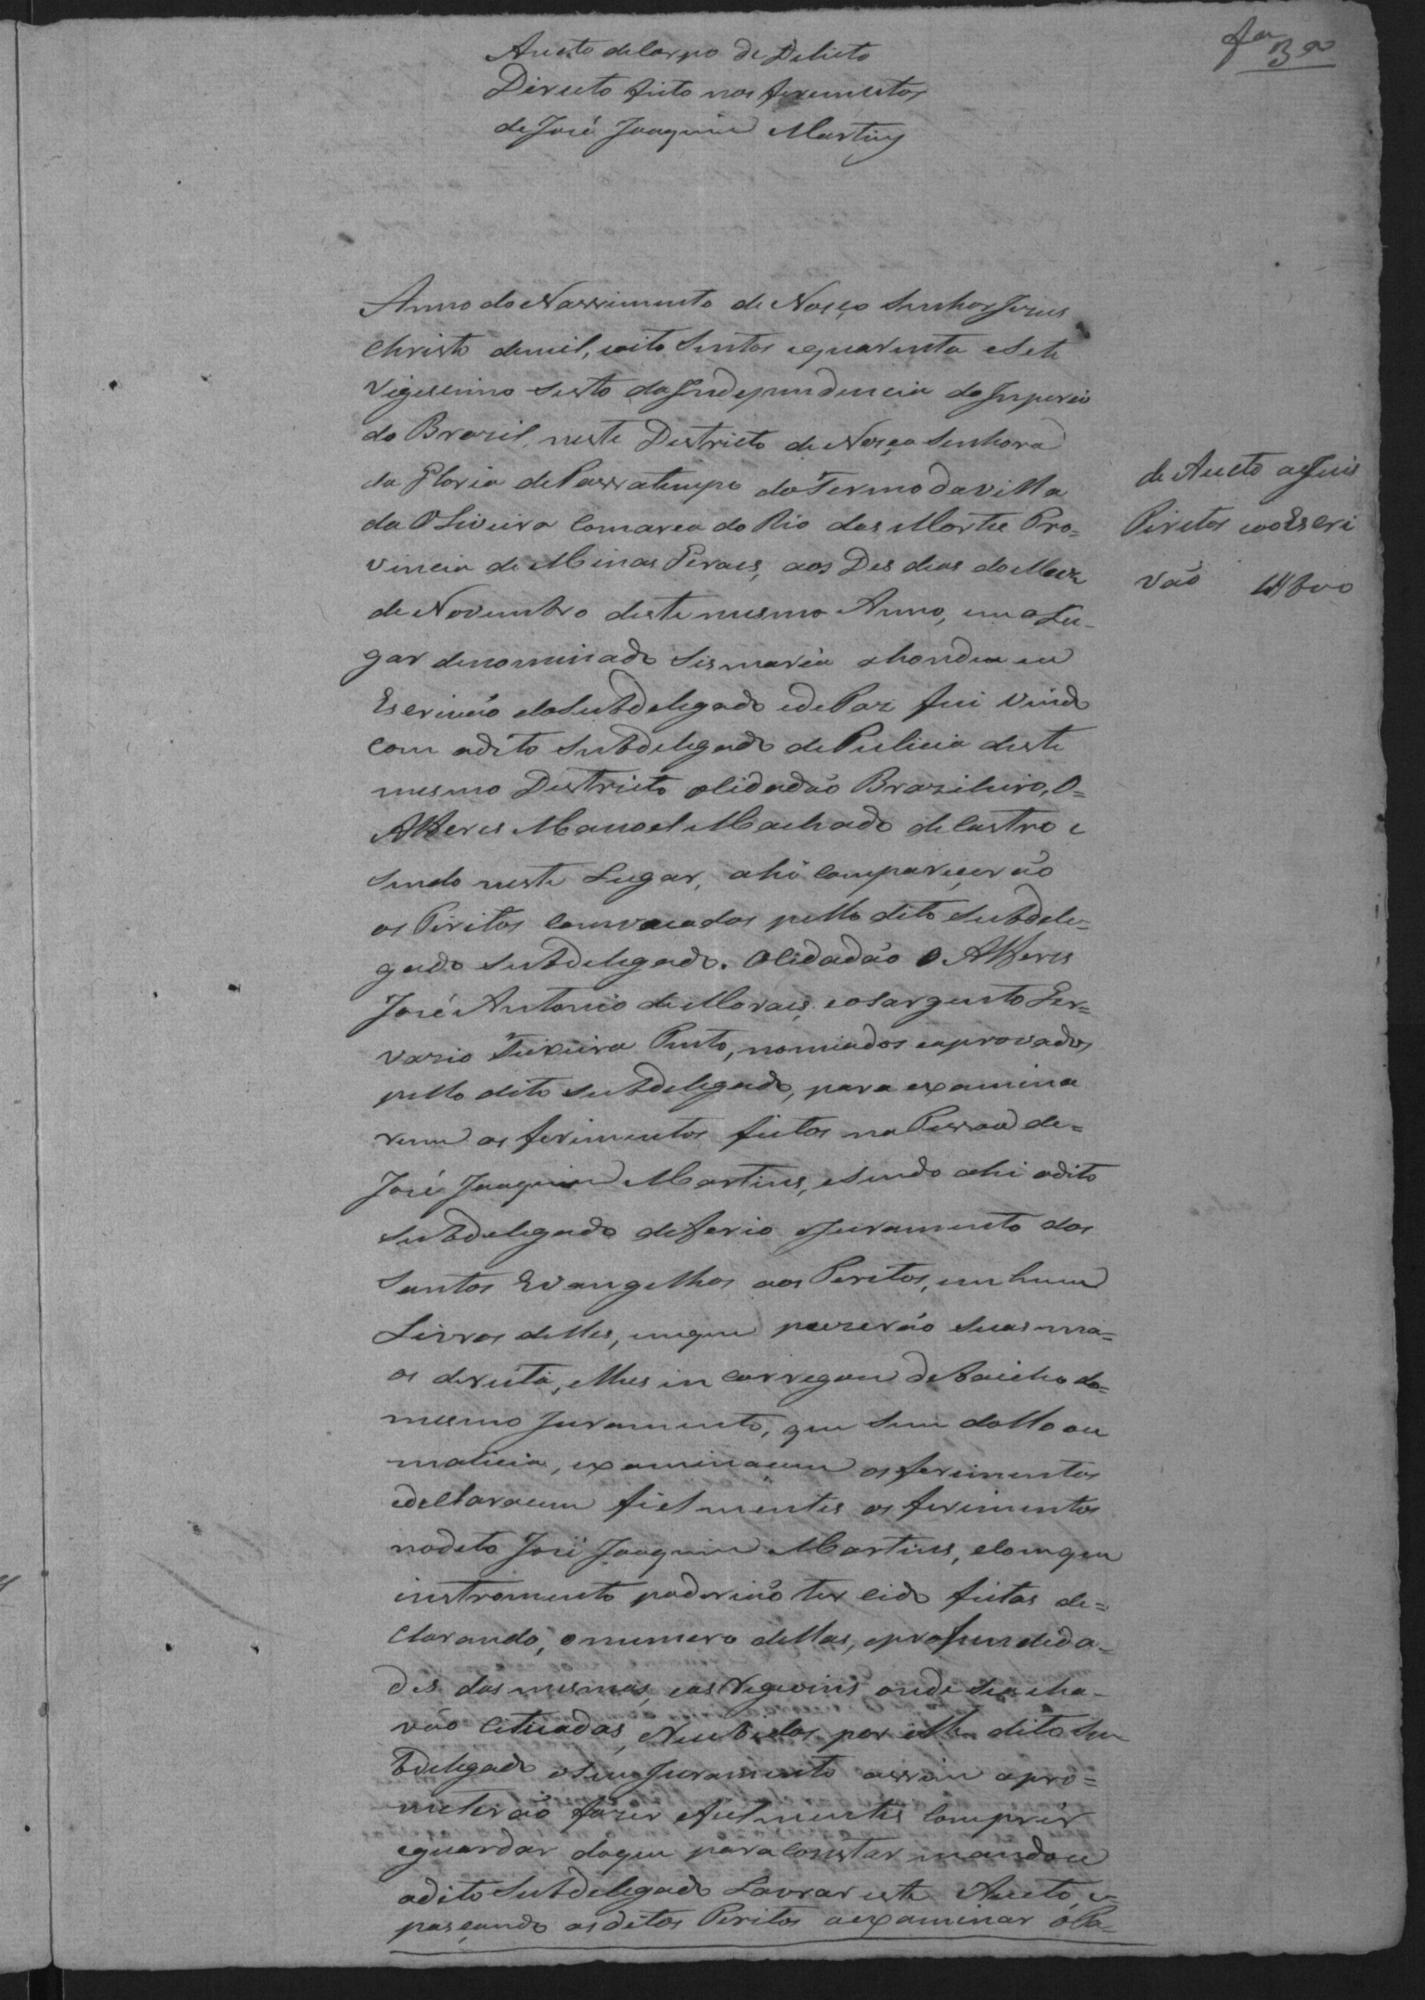 Aucto de Corpo de Delicto
Directo feito nos ferimentos
de José Joaquim Martins
Anno do Nassimento de Nosço Senhor Jezus
Christo de mil, oito Sentos equarenta esete
Vigessimo Sexto da Independencia do Imperio
do Brazil, neste Destricto de Nosça Senhora
da Gloria de Passatempo do Termo da villa
da Oliveira Comarca do Rio das Mortes Pro=
vincia de Minas Geraes, aos Des dias do Mez
de Novembro deste mesmo Anno, em o Lu-
gar denominado Sismaria ahonde eu
Escrivão do Subdelegado ede Paz fui vindo
com odito Subdelegado de Pulicia deste
mesmo Destricto oCidadão Brazileiro, O=
Alferes Manoel Machado de Castro e
sendo neste Lugar, ahi compareçerão
os Piritos comvocados pello dito Subdele-
gado Subdelegado. OCidadão O Alferes
José Antonio de Moraes, eoSargento Ger=
vazio Teixeira Pinto, nomiados eaprovados
pello dito Subdelegado, para examina
rem os ferimentos feitos na Pessoa de=
José Joaquim Martins, esendo ahi odito
Subdelegado deferio oJuramento dos
Santos Evangelhos aos Peritos, em hum
Livros delles, em que puzerão suas ma=
os dereita, elhes in carregou debaicho do=
mesmo Juramento, que sem dollo ou
malicia, examinacem os ferimentos
edeClaracem fielmentes os ferimentos
no dito José Joaquim Martins, ecom que
instromento poderião ter cido feitas de=
Clarando, onumero dellas, eprofundida-
des das mesmas, eas Regioins onde se acha-
vão Cituadas, eRecebido por elles dito Su
bdelegado oseu Juramento assim o pro=
meterão fazer efielmentes Comprir
eguardar doque para Constar mandou
odito Subdelegado Lavrar este Aucto, e
pasçando os ditos Peritos a examinar o Pa=
de Aucto ao Juis
Piritos eao Escri
vão